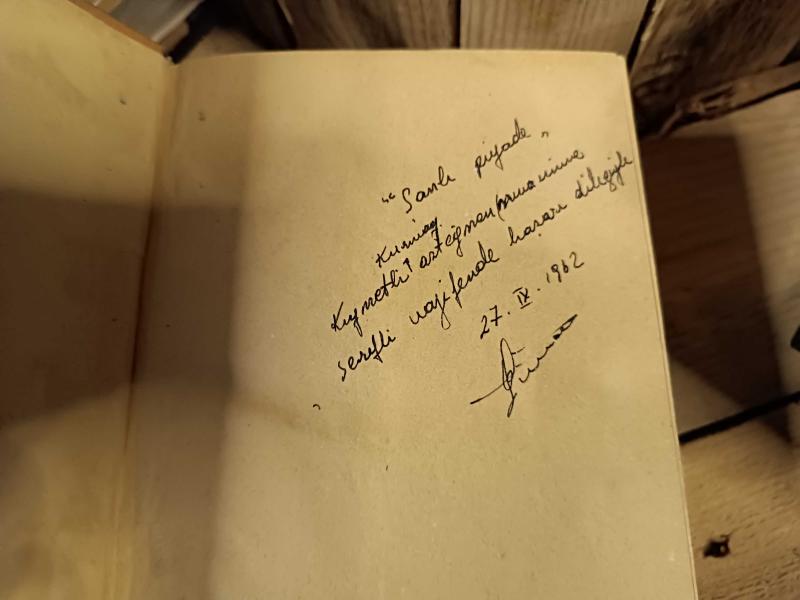 "Şanlı piyade"
Kurmay
Kıymetli asteğmen
şerefli vazifende başarı dileğiyle
27. IX. 1962